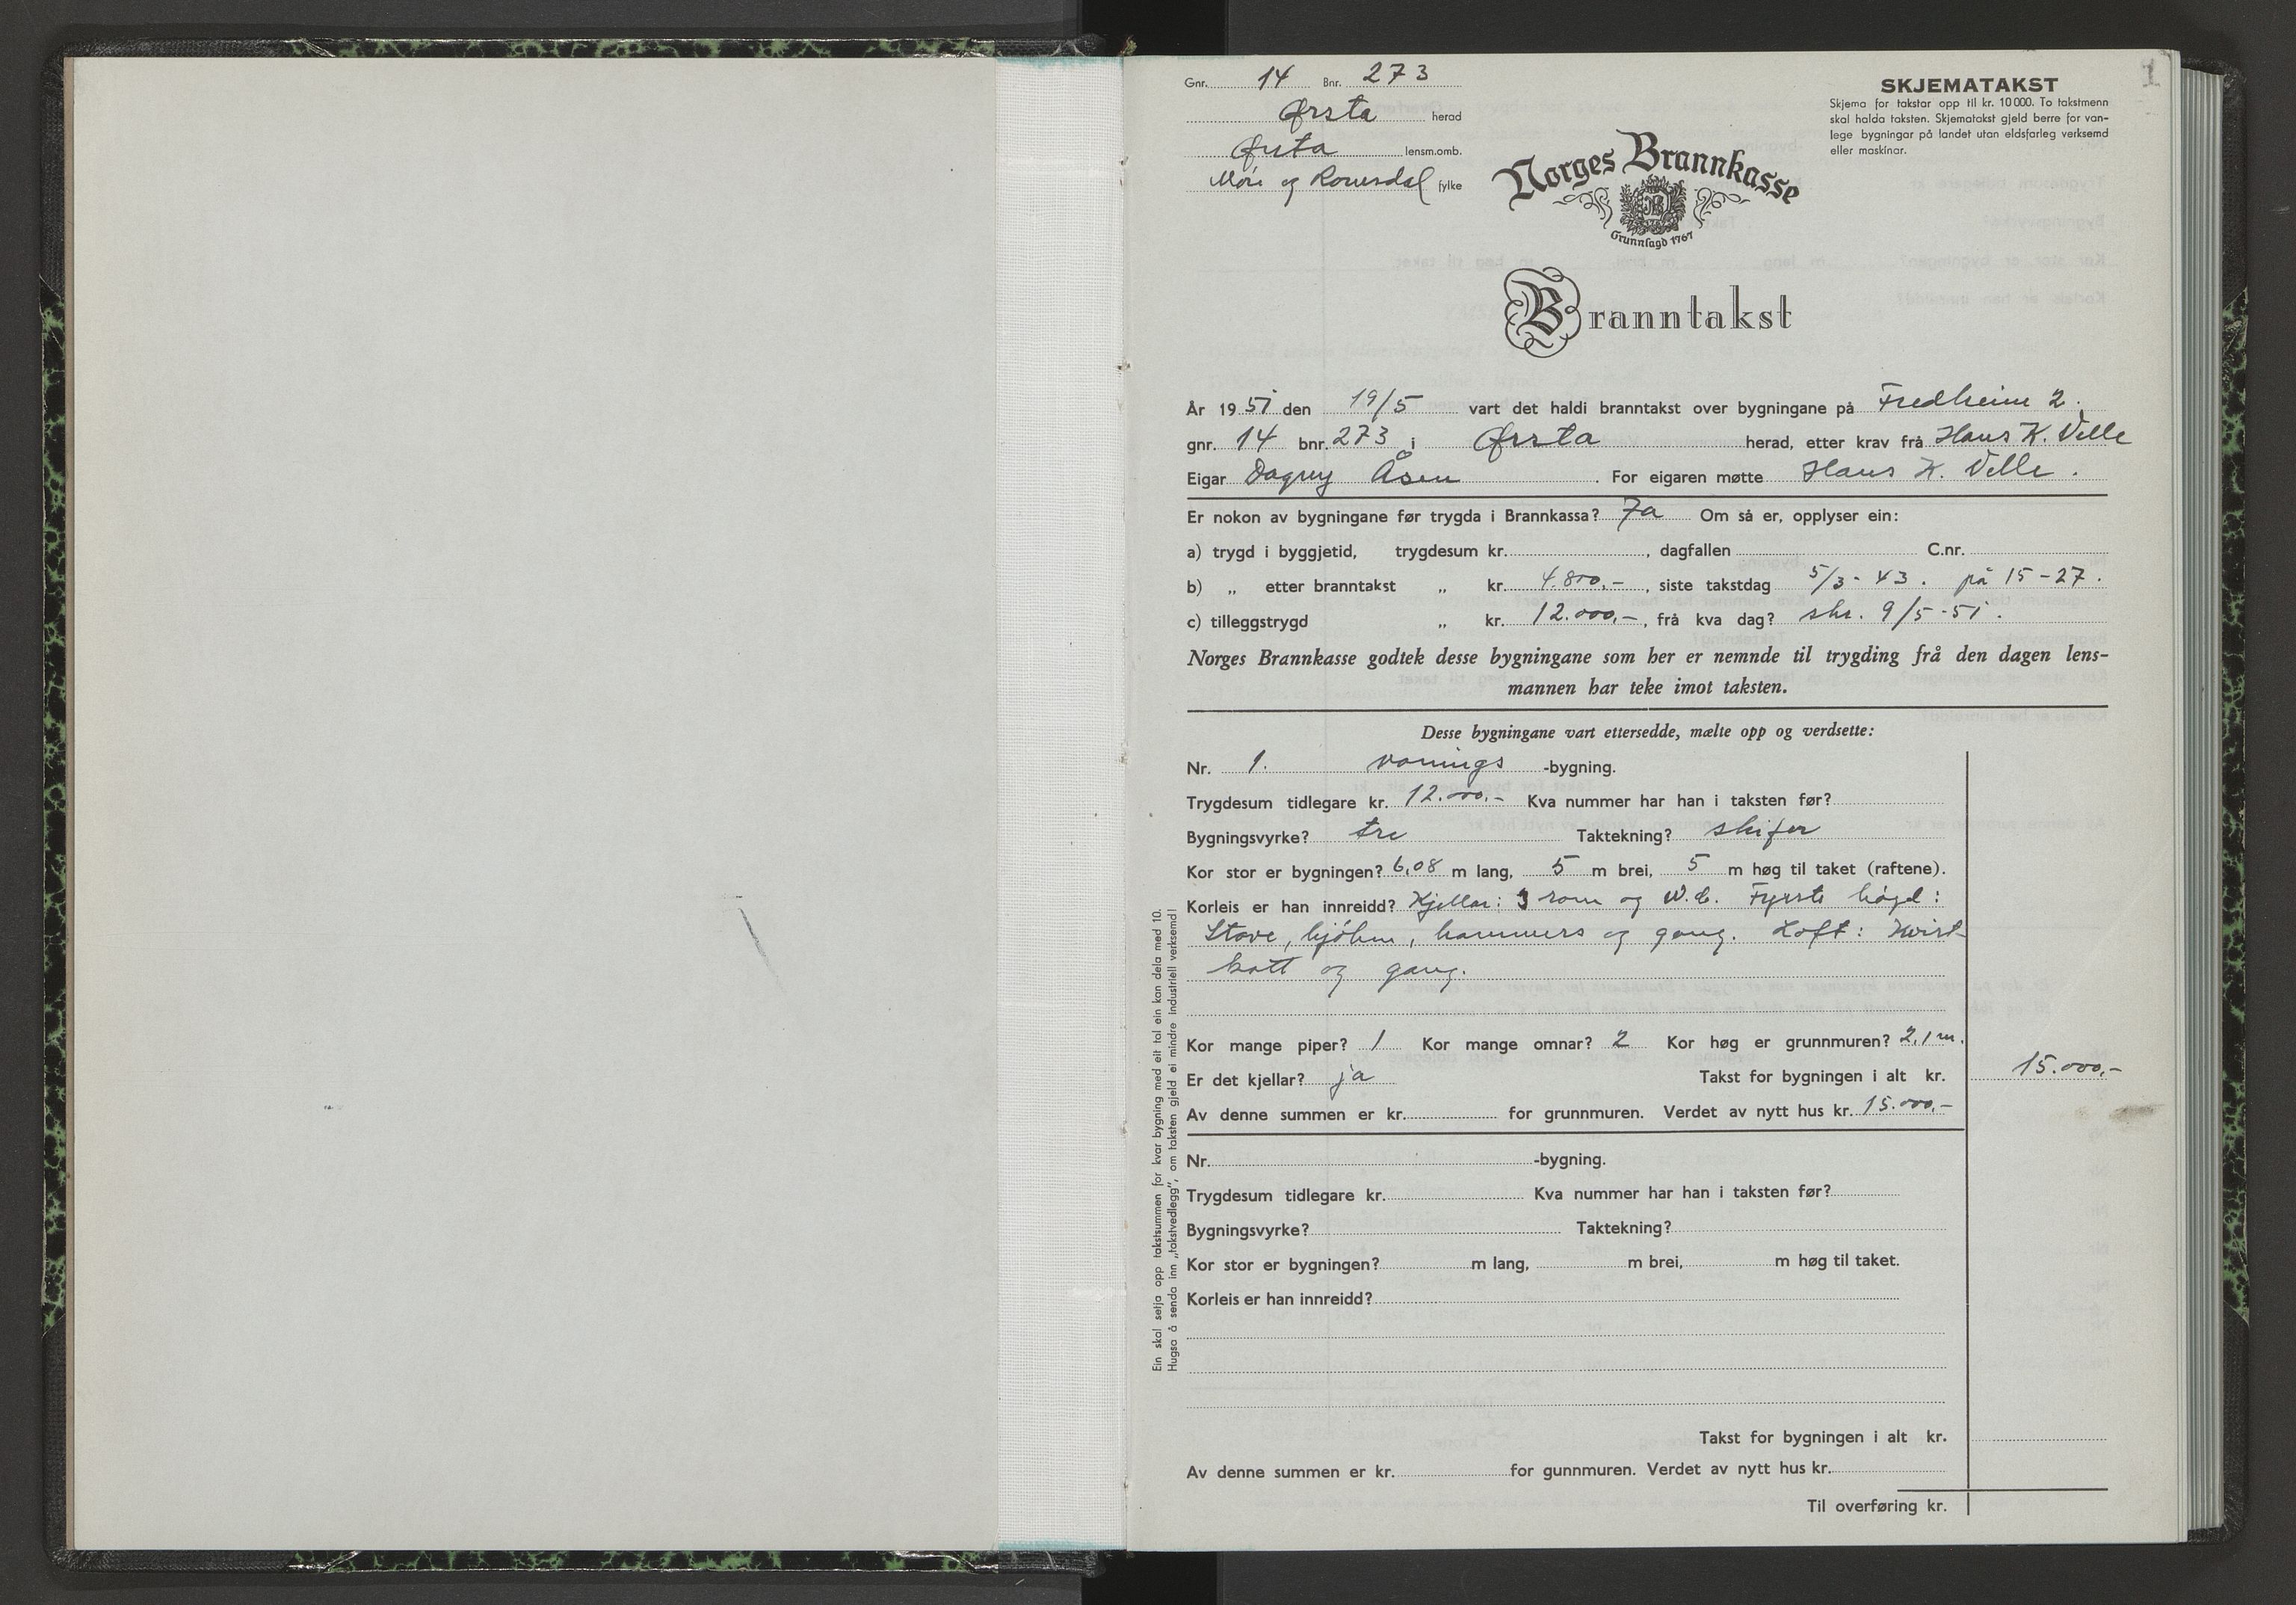 1
Gnr. 14 Bnr. 273
Ørsta herad
Ørsta lensm.omb.
Møre og Romsdal fylke
SKJEMATAKST
Skjema for takstar opp til kr. 10 000. To takstmenn
skal halda taksten. Skjematakst gjeld berre for van-
lege bygningar på landet utan eldsfarleg verksemd
eller maskinar.
Norges Brannkasse
Grunnlagd 1767
Branntakst
År 1951 den 19/5 vart det haldi branntakst over bygningane på Fredheim 2.
gnr. 14 bnr. 273 i Ørsta herad, etter krav frå Hans K. Velle
Eigar Dagny Åsen . For eigaren møtte Hans K. Velle .
Er nokon av bygningane før trygda i Brannkassa? Ja Om så er, opplyser ein:
a) trygd i byggjetid, trygdesum kr. , dagfallen C.nr.
b) „ etter branntakst „ kr. 4.800,- , siste takstdag 5/3-43. på 15-27.
c) tilleggstrygd „ kr. 12.000,- , frå kva dag? skr. 9/5-51.
Norges Brannkasse godtek desse bygningane som her er nemnde til trygding frå den dagen lens-
mannen har teke imot taksten.
Desse bygningane vart ettersedde, mælte opp og verdsette:
Nr. 1. vånings -bygning.
Trygdesum tidlegare kr. 12.000,- Kva nummer har han i taksten før?
Bygningsvyrke? tre Taktekning? skifer
Kor stor er bygningen? 6,08 m lang, 5 m brei, 5 m høg til taket (raftene).
Korleis er han innreidd? Kjellar: 3 rom og W.C. Fyrste høgd:
Stove, kjøken, kammers og gang. Loft: Kvist-
kott og gang.
Kor mange piper? 1 Kor mange omnar? 2 Kor høg er grunnmuren? 2,1 m.
Er det kjellar? ja Takst for bygningen i alt kr. 15.000,-
Av denne summen er kr. for grunnmuren. Verdet av nytt hus kr. 15.000,-
Nr. -bygning.
Trygdesum tidlegare kr. Kva nummer har han i taksten før?
Bygningsvyrke? Taktekning?
Kor stor er bygningen? m lang, m brei, m høg til taket.
Korleis er han innreidd?
Takst for bygningen i alt kr.
Av denne summen er kr. for gunnmuren. Verdet av nytt hus kr.
Til overføring kr.
Ein skal setja opp takstsummen for kvar bygning med eit tal ein kan dela med 10.
Hugsa å senda inn „takstvedlegg", om taksten gjeld ei mindre industriell verksemd!